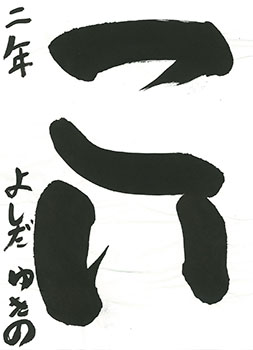 こい
二年 よしだ ゆきの